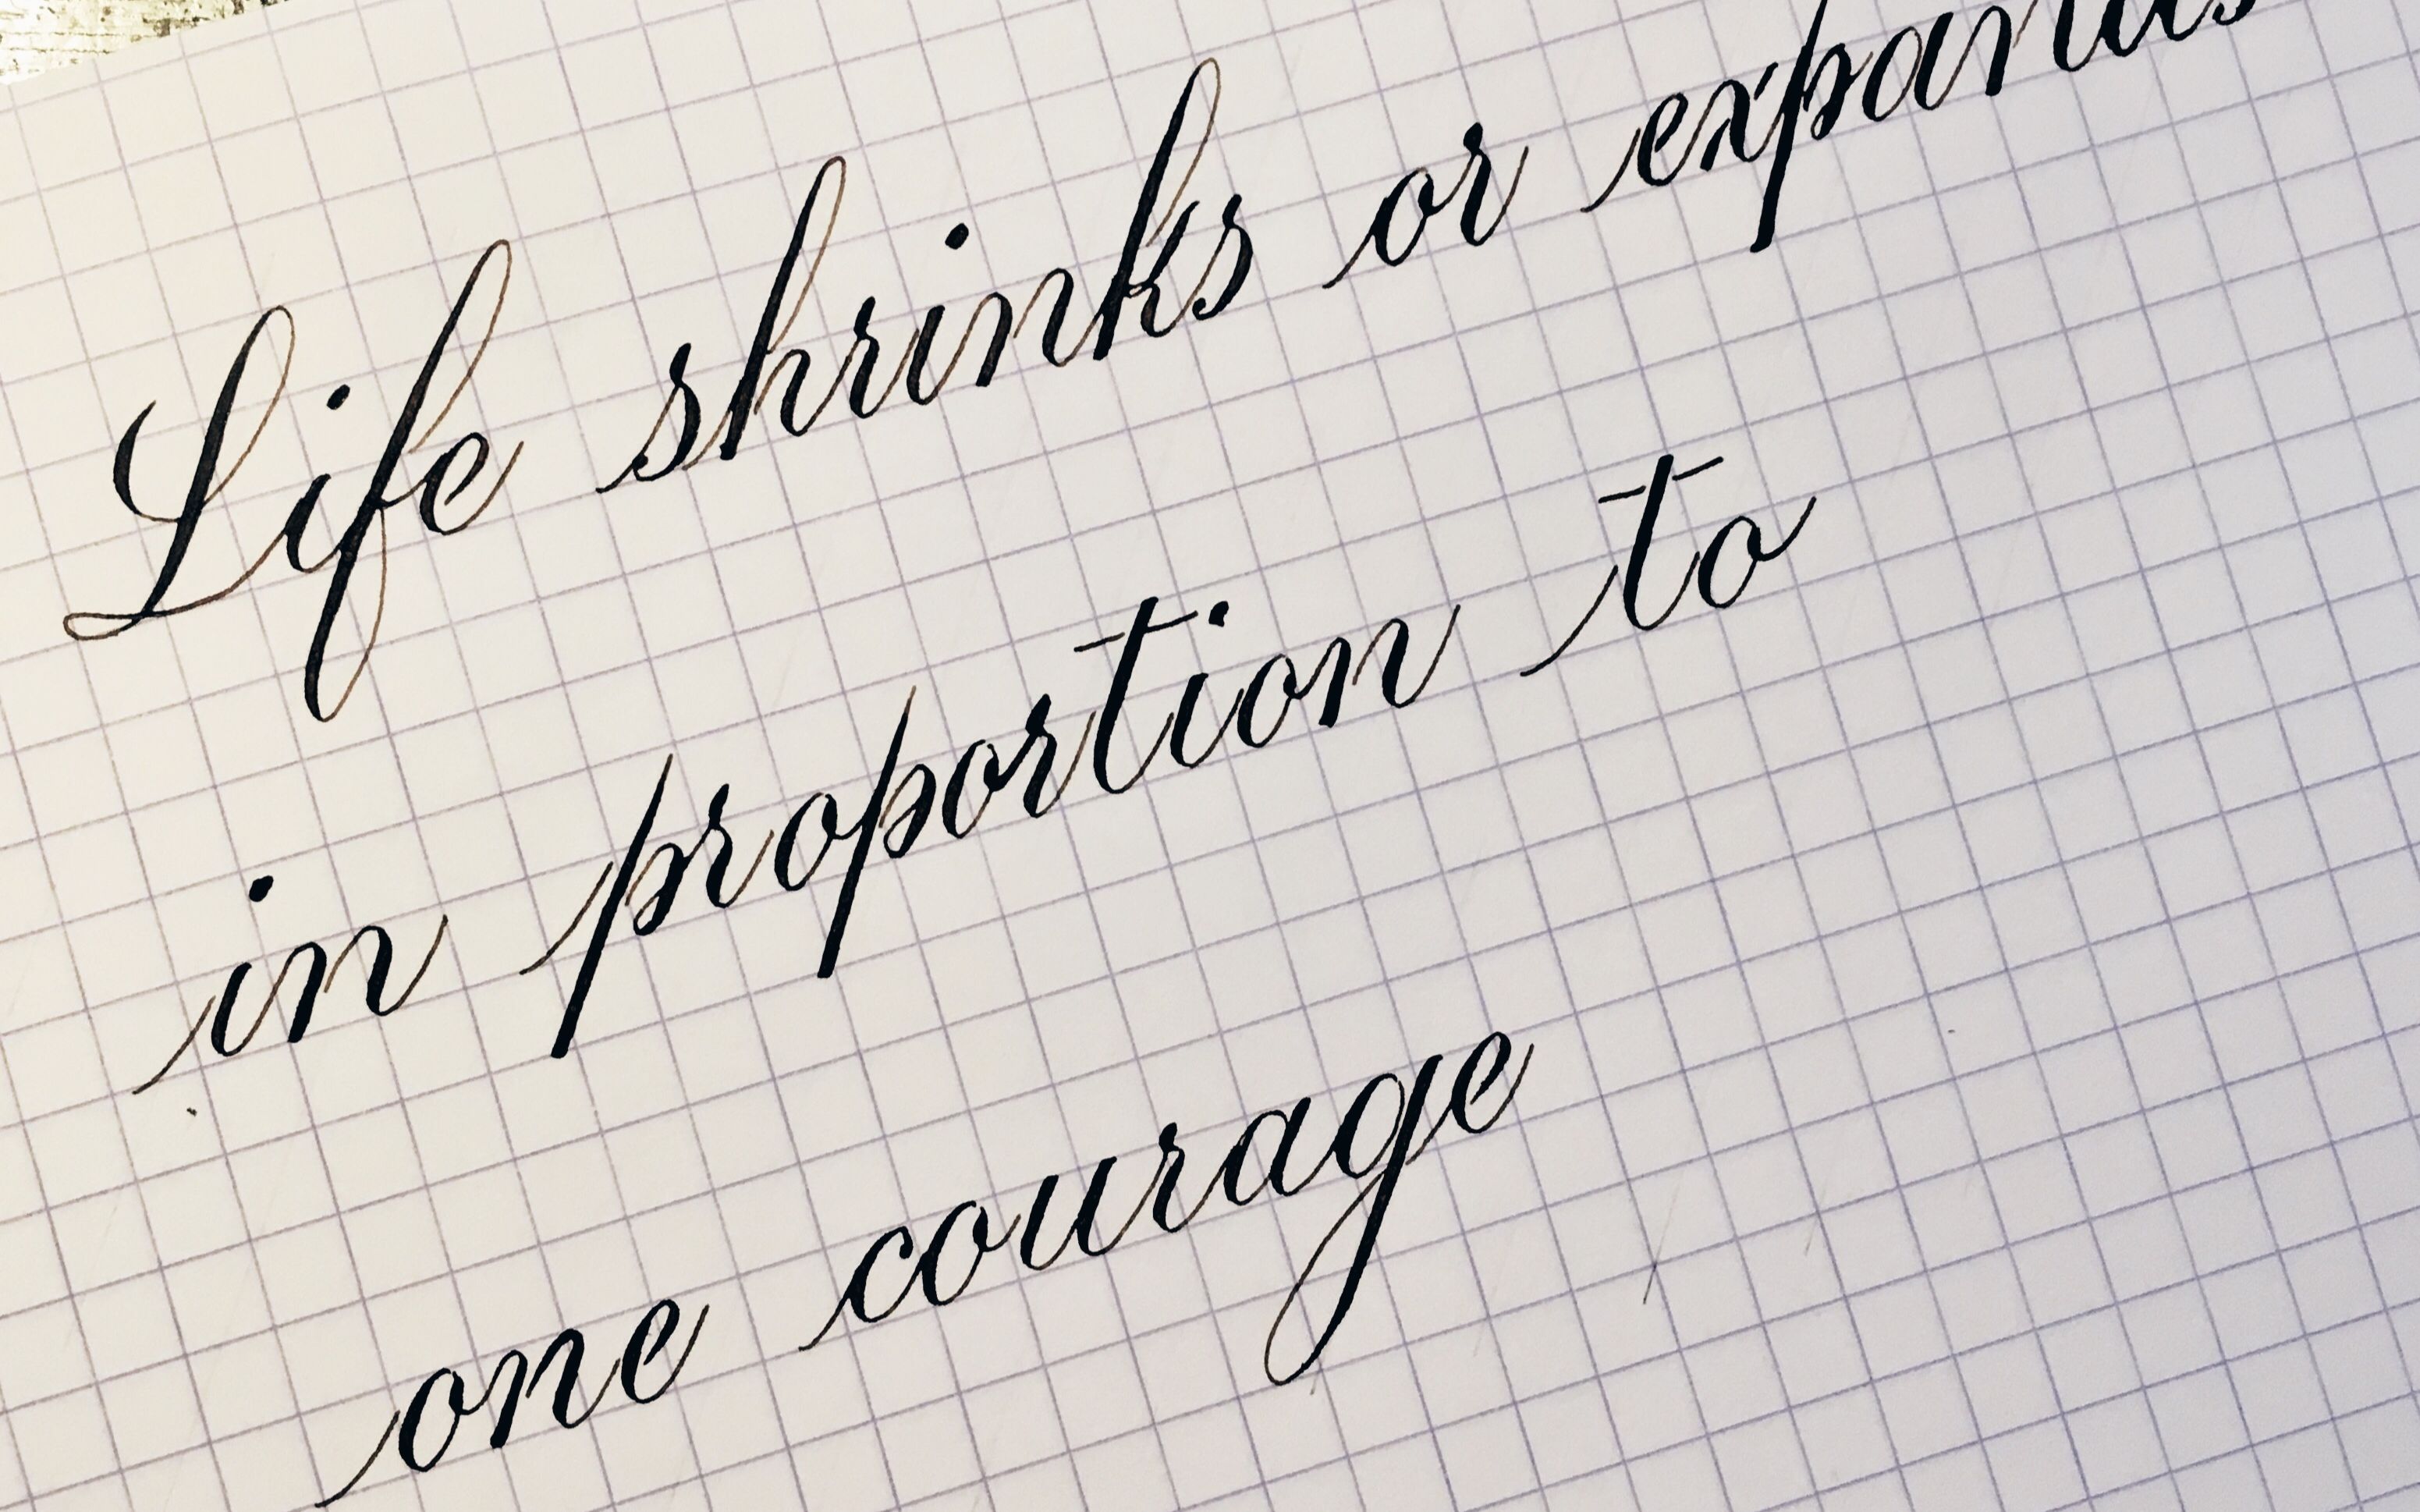 Life shrinks or expands
in proportion to
one courage